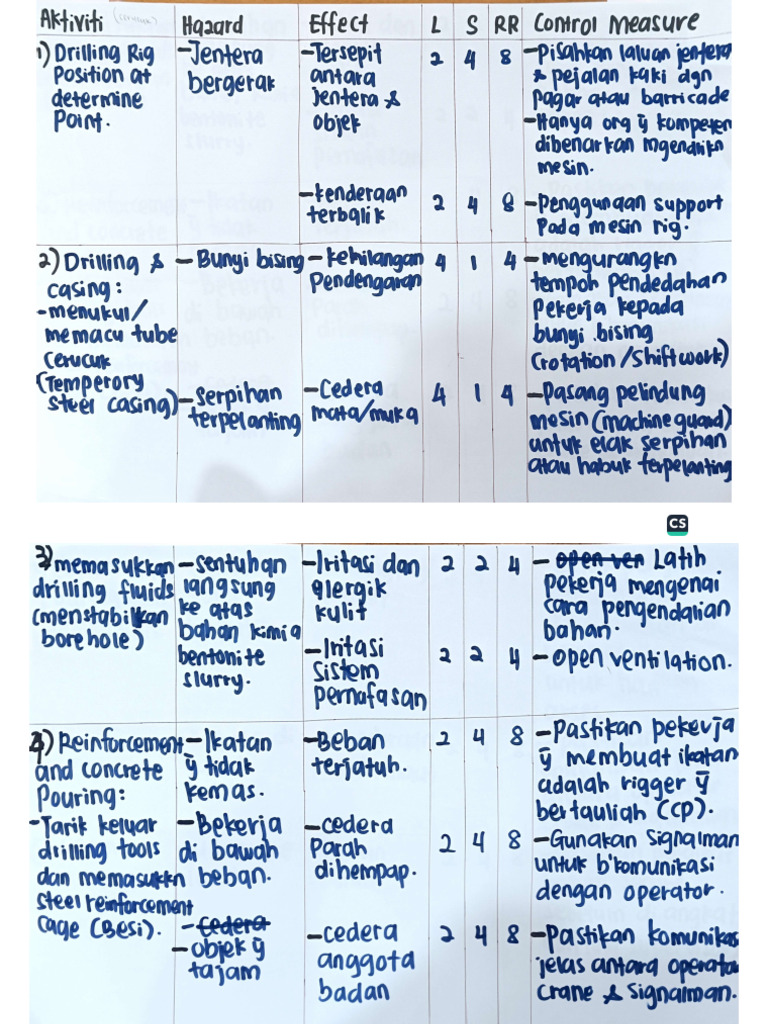 Aktiviti Hazard Effect L S RR Control Measure
1) Drilling Rig
Position at
determine
Point.
-Jentera
bergerak
-Tersepit
antara
Jentera &
objek
2 4 8
-Pisahkan laluan jentera
& pejalan kaki dgn
pagar atau barricade
-Hanya org ȳ kompeten
dibenarkan mgendrikn
mesin.
-kenderaan
terbalik
2 4 8
-Penggunaan support
Pada mesin rig.
2) Drilling &
casing:
-menukul/
memacu tube
cerucuk
(Temperory
steel casing)
-Bunyi bising
-kehilangan
Pendengaran
4 1 4
-mengurangkn
tempoh pendedahan
Pekerja kepada
bunyi bising
(rotation/shiftwork)
-Serpihan
terpelanting
-Cedera
mata/muka
4 1 4
-Pasang pelindung
mesin (machine guard)
untuk elak serpihan
atau habuk terpelanting
CS
3) memasukkan
drilling fluids
(menstabilkan
borehole)
-sentuhan
langsung
ke atas
bahan kimia
bentonite
slurry.
-Iritasi dan
alergik
kulit
2 2 4
-open ven Latih
pekerja mengenai
cara pengendalian
bahan.
-Iritasi
sistem
pernafasan
2 2 4
-open ventilation.
4) Reinforcement
and concrete
Pouring:
-Tarik keluar
drilling tools
dan memasukkn
steel reinforcement
cage (Besi).
-Ikatan
ȳ tidak
kemas.
-Beban
terjatuh.
2 4 8
-Pastikan pekerja
ȳ membuat ikatan
adalah rigger ȳ
bertauliah (CP).
-Bekerja
di bawah
beban.
-cedera
Parah
dihempap.
2 4 8
-Gunakan signalman
untuk b'komunikasi
dengan operator.
-Cedera
-objek ȳ
tajam
-cedera
anggota
badan
2 4 8
-Pastikan komunikas
jelas antara operato
crane & signalman.